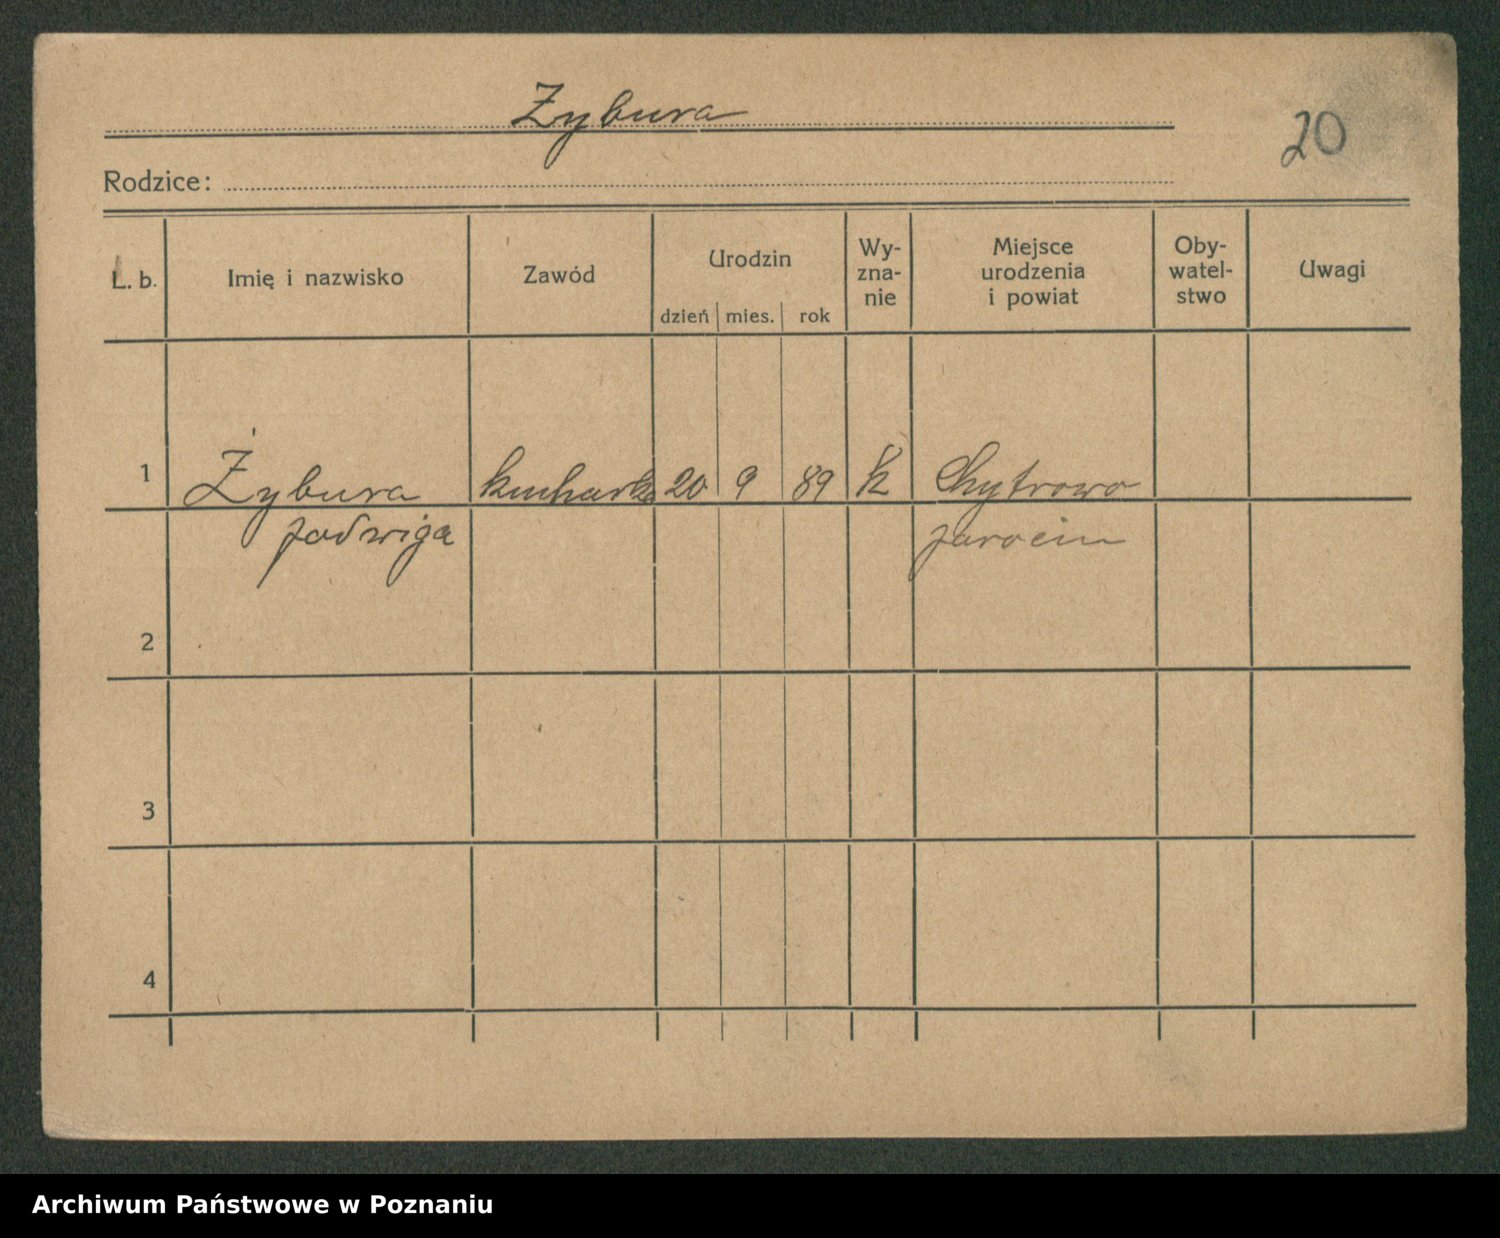 Żybura
20
Rodzice:
L. b.
Imię i nazwisko
Zawód
Urodzin
dzień mies. rok
Wy-
zna-
nie
Miejsce
urodzenia
i powiat
Oby-
watel-
stwo
Uwagi
1 Żybura kucharka 20 9 89 k Chytrowo
Jadwiga Jarocin
2
3
4
Archiwum Państwowe w Poznaniu